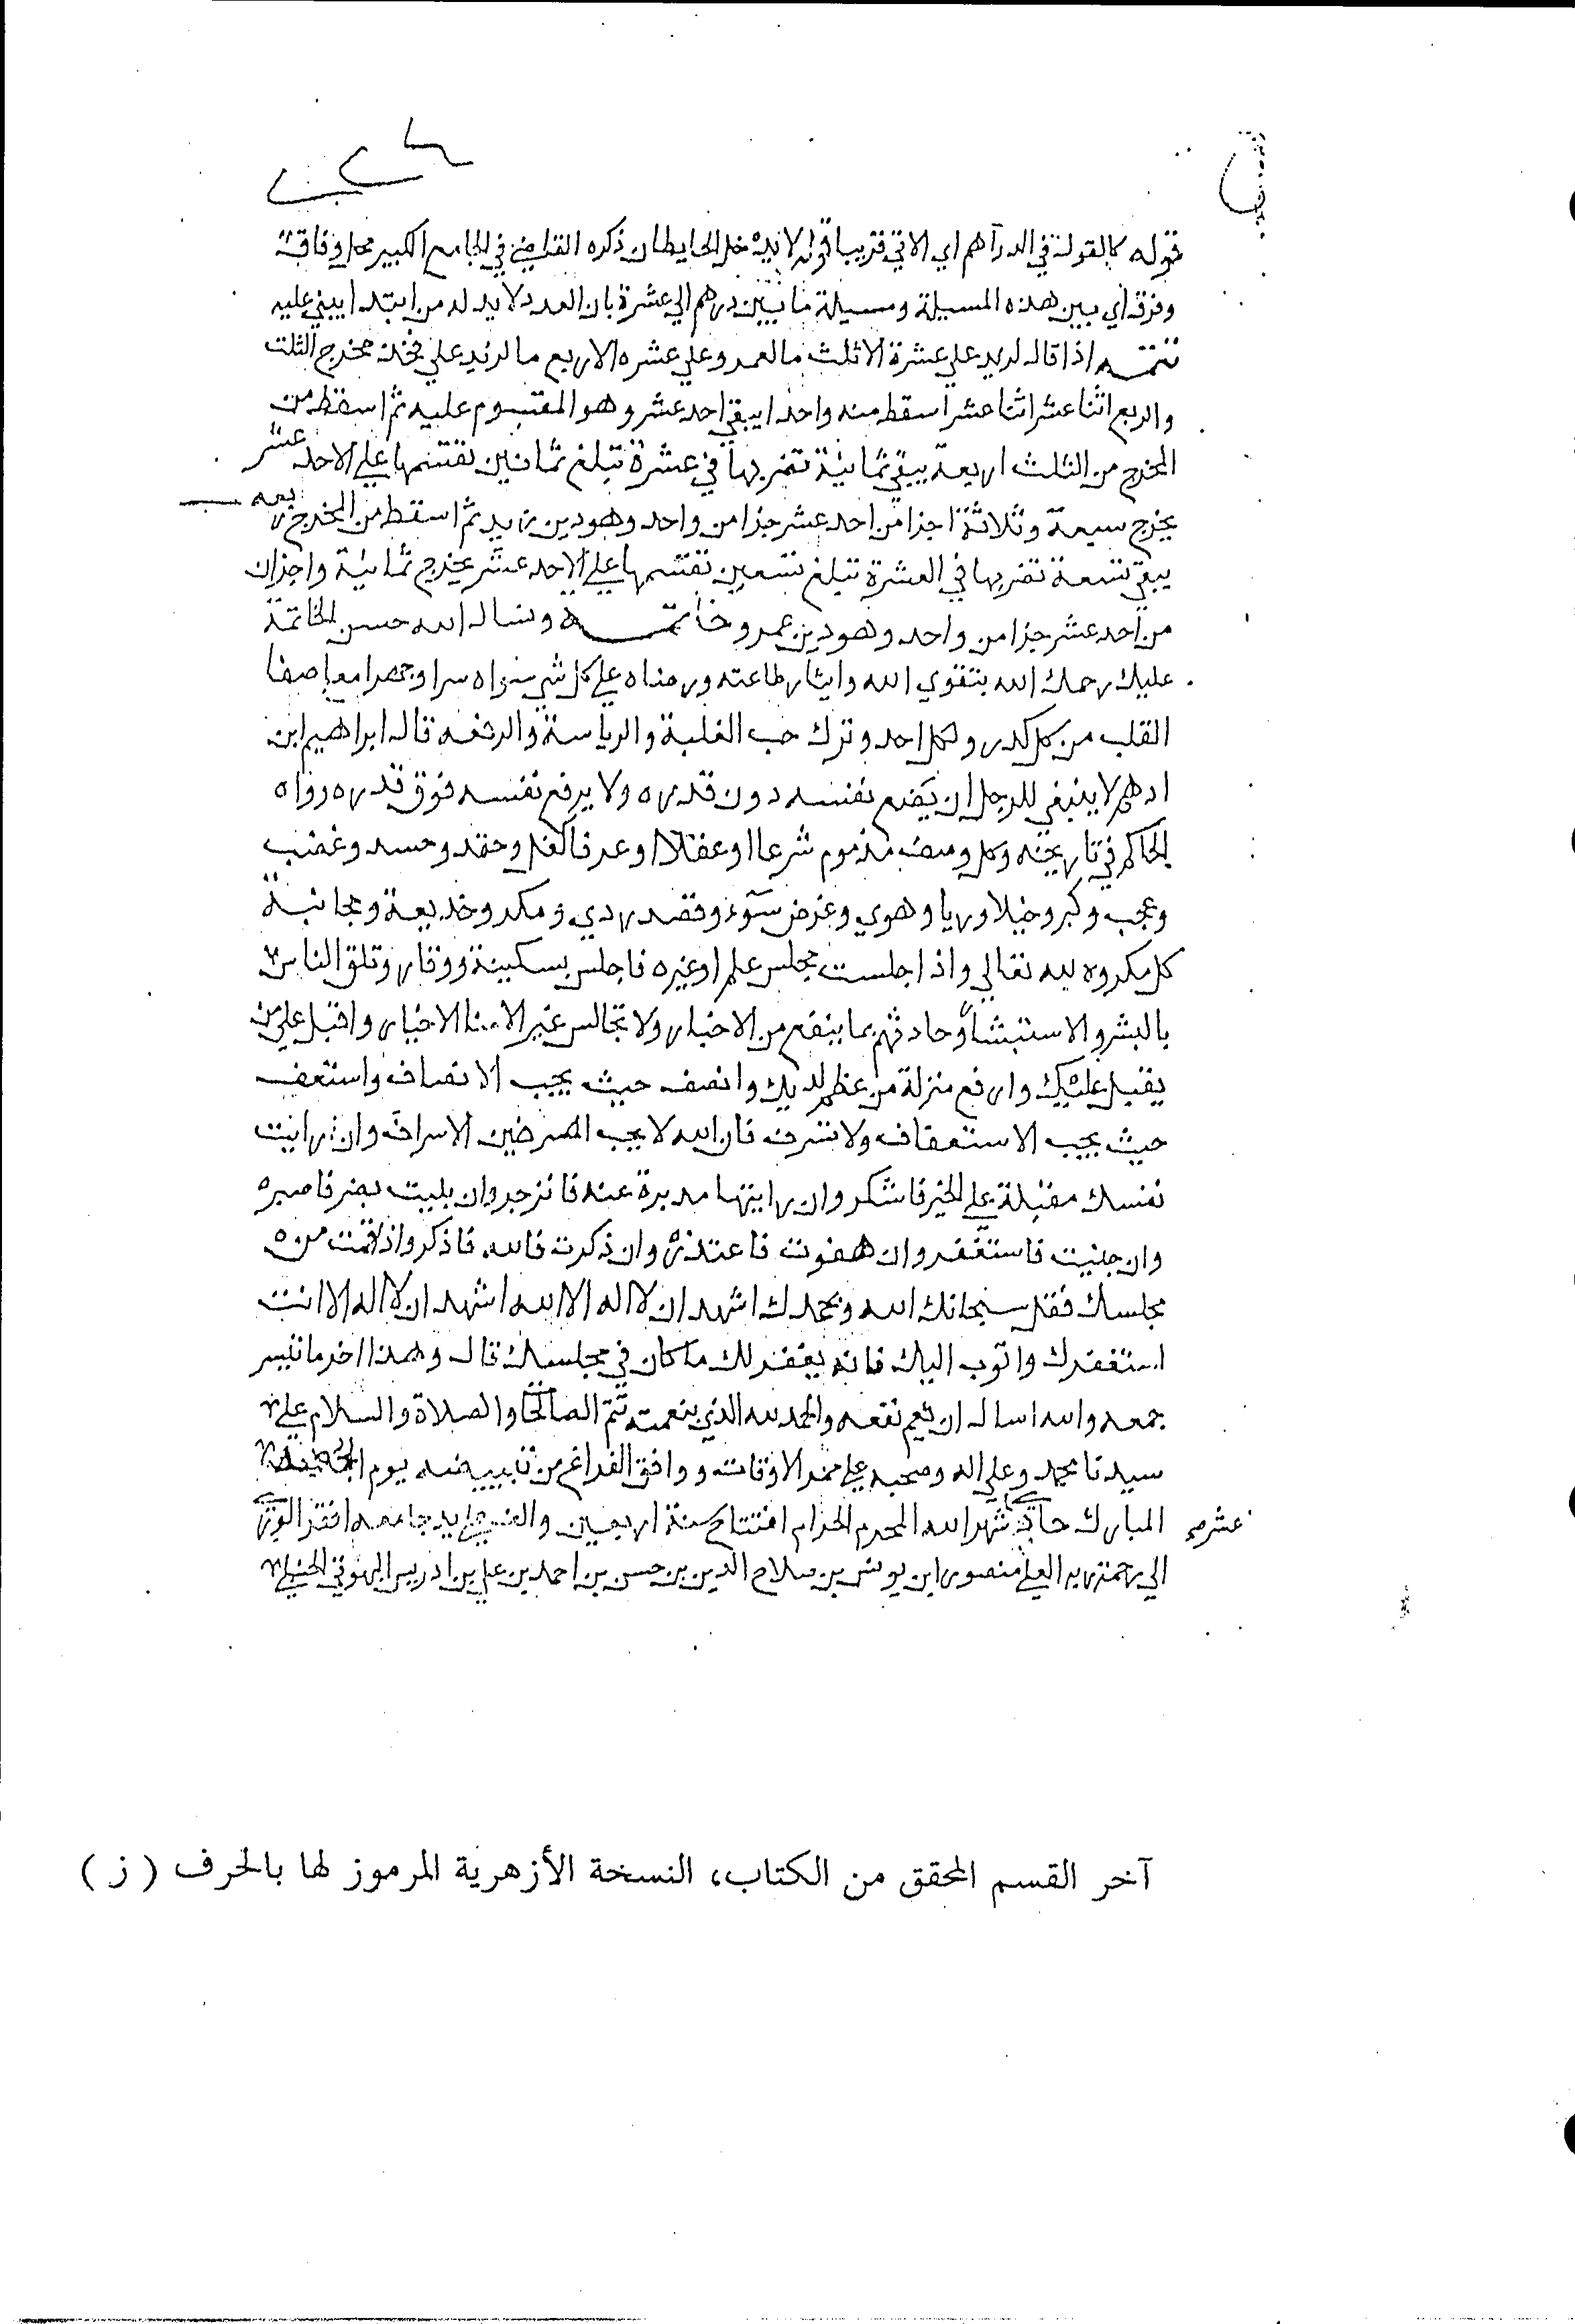 قوله كالقولة في الدراهم اي الاتي قريبا قوله لا يدخل الحايطان ذكره القاضي في الجامع الكبير محل وفاقة
وفرق اي بين هذه المسيلة ومسيلة ما بين درهم الي عشرة بان العدد لا بد له من ابتدا يبني عليه
تتمه اذا قال لزيد علي عشرة الا ثلث ما لعمرو وعلي عشره الا ربع ما لزيد علي فخذ مخرج الثلث
والربع اثنا عشر اسقط منه واحدا يبقي احد عشر وهو المقسوم عليه ثم اسقط من
المخرج من الثلث اربعة يبقي ثمانية تضربها في عشرة تبلغ ثمانين تقسمها علي الاحد عشر
يخرج سبعة وثلاثة اجزا من احد عشر جزا من واحد وهو دين زيد ثم اسقط من المخرج ربعه
يبقي تسعة تضربها في العشرة تبلغ تسعين تقسمها علي الاحد عشر يخرج ثمانية واجزان
من احد عشر جزا من واحد وهو دين عمرو خاتمه ونسال الله حسن الخاتمة
عليك رحمك الله بتقوي الله وايثار طاعته ورضاه علي كل شي سواه سرا وجهرا مع اصفا
القلب من كل كدر ولكل احد وترك حب الغلبة والرياسة والرفعه قال ابراهيم ابن
ادهم لا ينبغي للرجل ان يضع نفسه دون قدره ولا يرفع نفسه فوق قدره رواه
الحاكم في تاريخه وكل وصف مذموم شرعا او عقلا او عرفا كغل وحقد وحسد وغضب
وعجب وكبر وخيلا وريا وهوي وغرض سوء وقصد ردي ومكر وخديعة ومجانبة
كل مكروه لله تعالي واذا جلست مجلس علم او غيره فاجلس بسكينة ووقار وتلق الناس
بالبشر والاستبشا وحادثهم بما ينفع من الاخبار ولا تجالس غير الامنا الاخيار واقبل علي من
يقبل عليك وارفع منزلة من عظم لديك وانصف حيث يجب الانصاف واستعف
حيث يجب الاستعفاف ولا تسرف فان الله لا يحب المسرفين الاسراف وان رايت
نفسك مقبلة علي الخير فاشكر وان رايتها مدبرة عنه فانزجر وان بليت بضر فاصبره
وان جنيت فاستغفر وان هفوت فاعتذر وان ذكرت فالله فاذكر واذا قمت من
مجلسك فقل سبحانك الله وبحمدك اشهد ان لا اله الا الله اشهد ان لا اله الا انت
استغفرك واتوب اليك فانه يغفر لك ما كان في مجلسك قال وهذا اخر ما تيسر
جمعه والله اسال ان يعم نفعه والحمد لله الذي بنعمته تتم الصالحا والصلاة والسلام علي
سيدنا محمد وعلي اله وصحبه علي ممر الاوقات ووافق الفراغ من تبييضه يوم
عشر المبارك شهر الله المحرم الحرام افتتاح سنة اربعين والف علي يد جامعه افقر الوري
الي رحمة ربه العلي منصور ابن يونس بن صلاح الدين بن حسن بن احمد بن علي بن ادريس البهوتي الحنبلي
آخر القسم المحقق من الكتاب، النسخة الأزهرية المرموز لها بالحرف (ز)